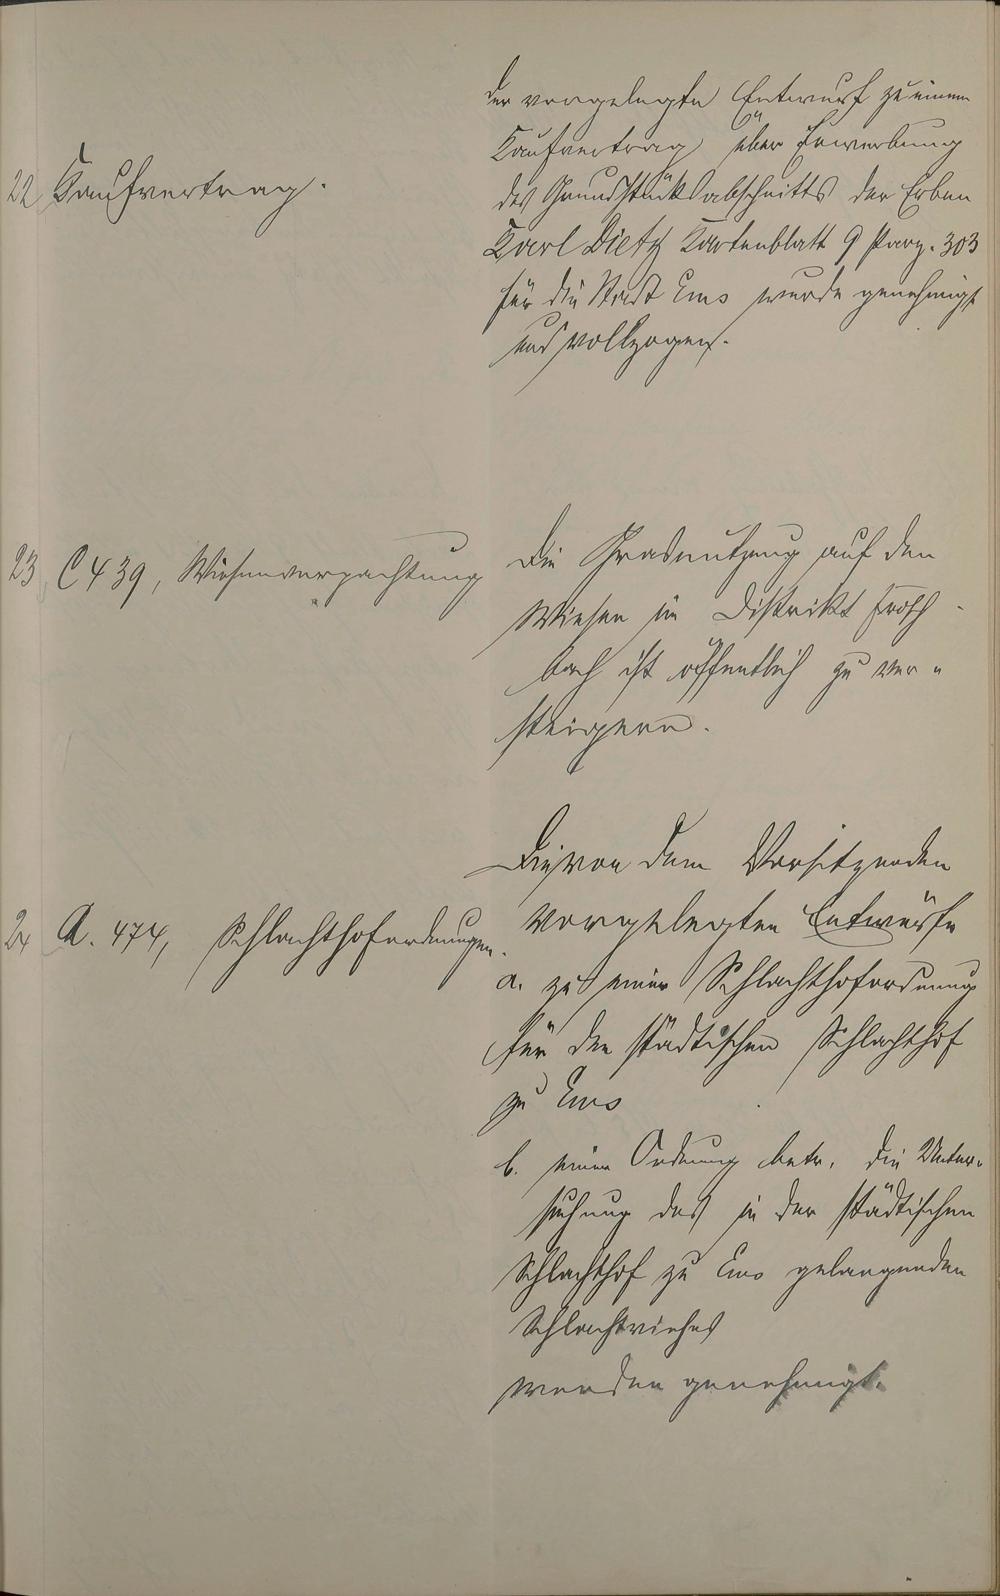 22 Kaufvertrag.
Der vorgelegte Entwurf zu einem
Kaufvertrag über Erwerbung
des Grundstücksabschnitts der Erben
Karl Dietz Kartenblatt 9 Parz. 303
für die Stadt Ems wurde genehmigt
und vollzogen.
23 C 439, Wiesenverpachtung
Die Grasnutzung auf den
Wiesen im Distrikt Frosch-
bach ist öffentlich zu ver-
steigern.
24 A. 474, Schlachthofordnungen.
Die von dem Vorsitzenden
vorgelegten Entwürfe
a. zu einer Schlachthofordnung
für den städtischen Schlachthof
zu Ems
b. einer Ordnung betr. die Unter-
suchung des in der städtischen
Schlachthof zu Ems gelangenden
Schlachtviehes
werden genehmigt.